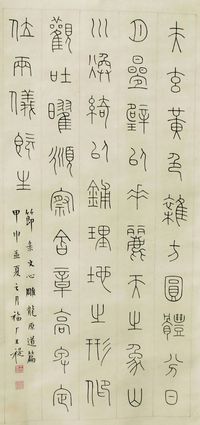 夫玄黃色雜方圓體分日
月疊璧以垂麗天之象山
川煥綺以鋪理地之形仰
觀吐曜頫察含章高卑定
位兩儀既生
節彔文心雕龍原道篇
甲申孟夏之月福厂王禔